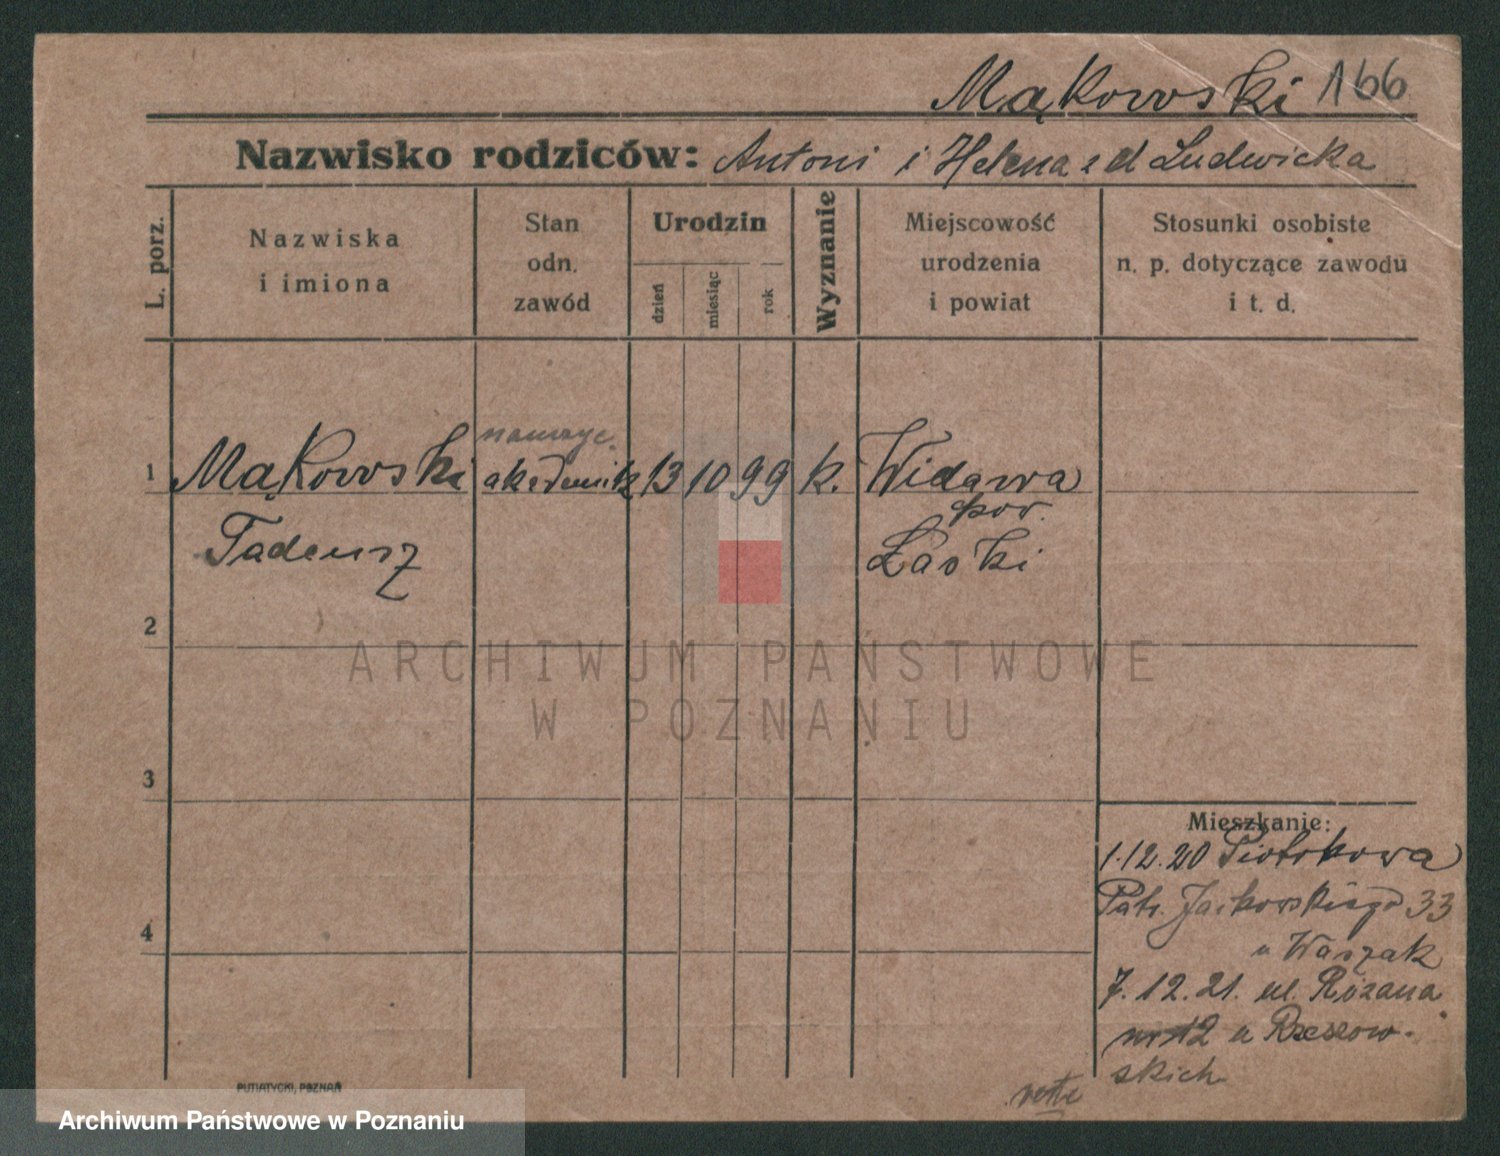 Mąkowski 166
Nazwisko rodziców: Antoni i Helena z d Ludwicka
L. porz.
Nazwiska
i imiona
Stan
odn.
zawód
Urodzin
dzień
miesiąc
rok
Wyznanie
Miejscowość
urodzenia
i powiat
Stosunki osobiste
n. p. dotyczące zawodu
i t. d.
nauczyc.
1 Mąkowski akademik 13 10 99 k. Widawa
pow.
Tadeusz Łaski
2
ARCHIWUM PAŃSTWOWE
W POZNANIU
3
Mieszkanie:
1.12.20 Piotrkowa
4 Patr. Jackowskiego 33
u Waszak
7.12.21. ul. Różana
12 u Rzeszow-
skich
PUTIATYCKI, POZNAŃ
verte
Archiwum Państwowe w Poznaniu